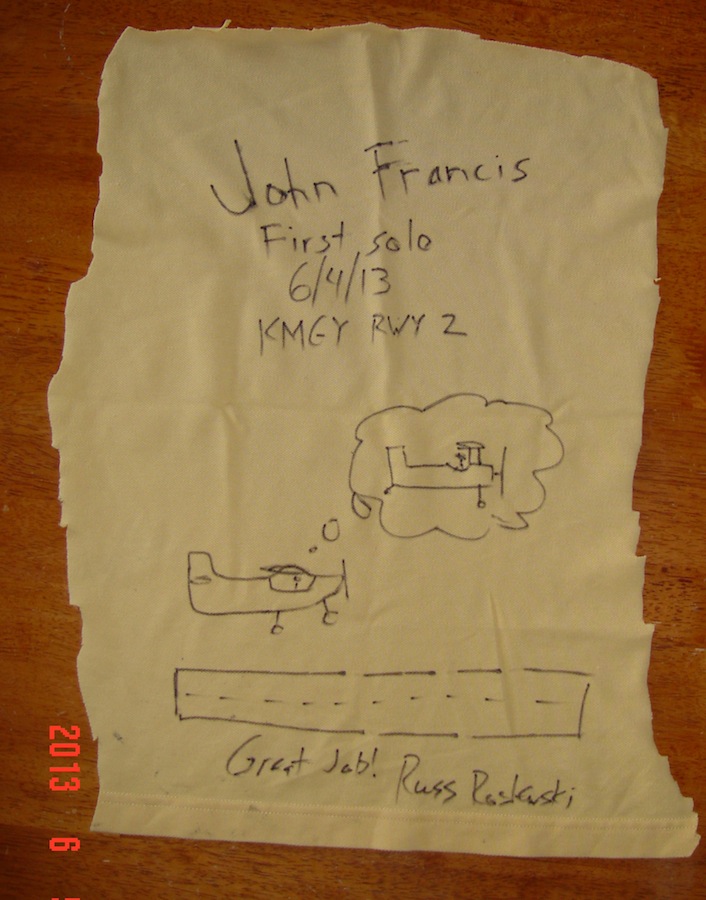 John Francis
First solo
6/4/13
KMGY RWY 2
Great Job! Russ
2013 6